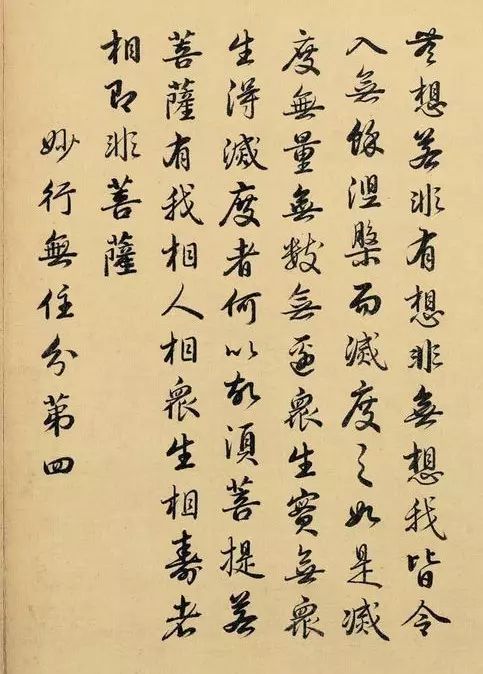 无想若非有想非無想我皆令
入無餘涅槃而滅度之如是滅
度無量無數無邊衆生實無衆
生得滅度者何以故須菩提若
菩薩有我相人相衆生相壽者
相即非菩薩
妙行無住分第四